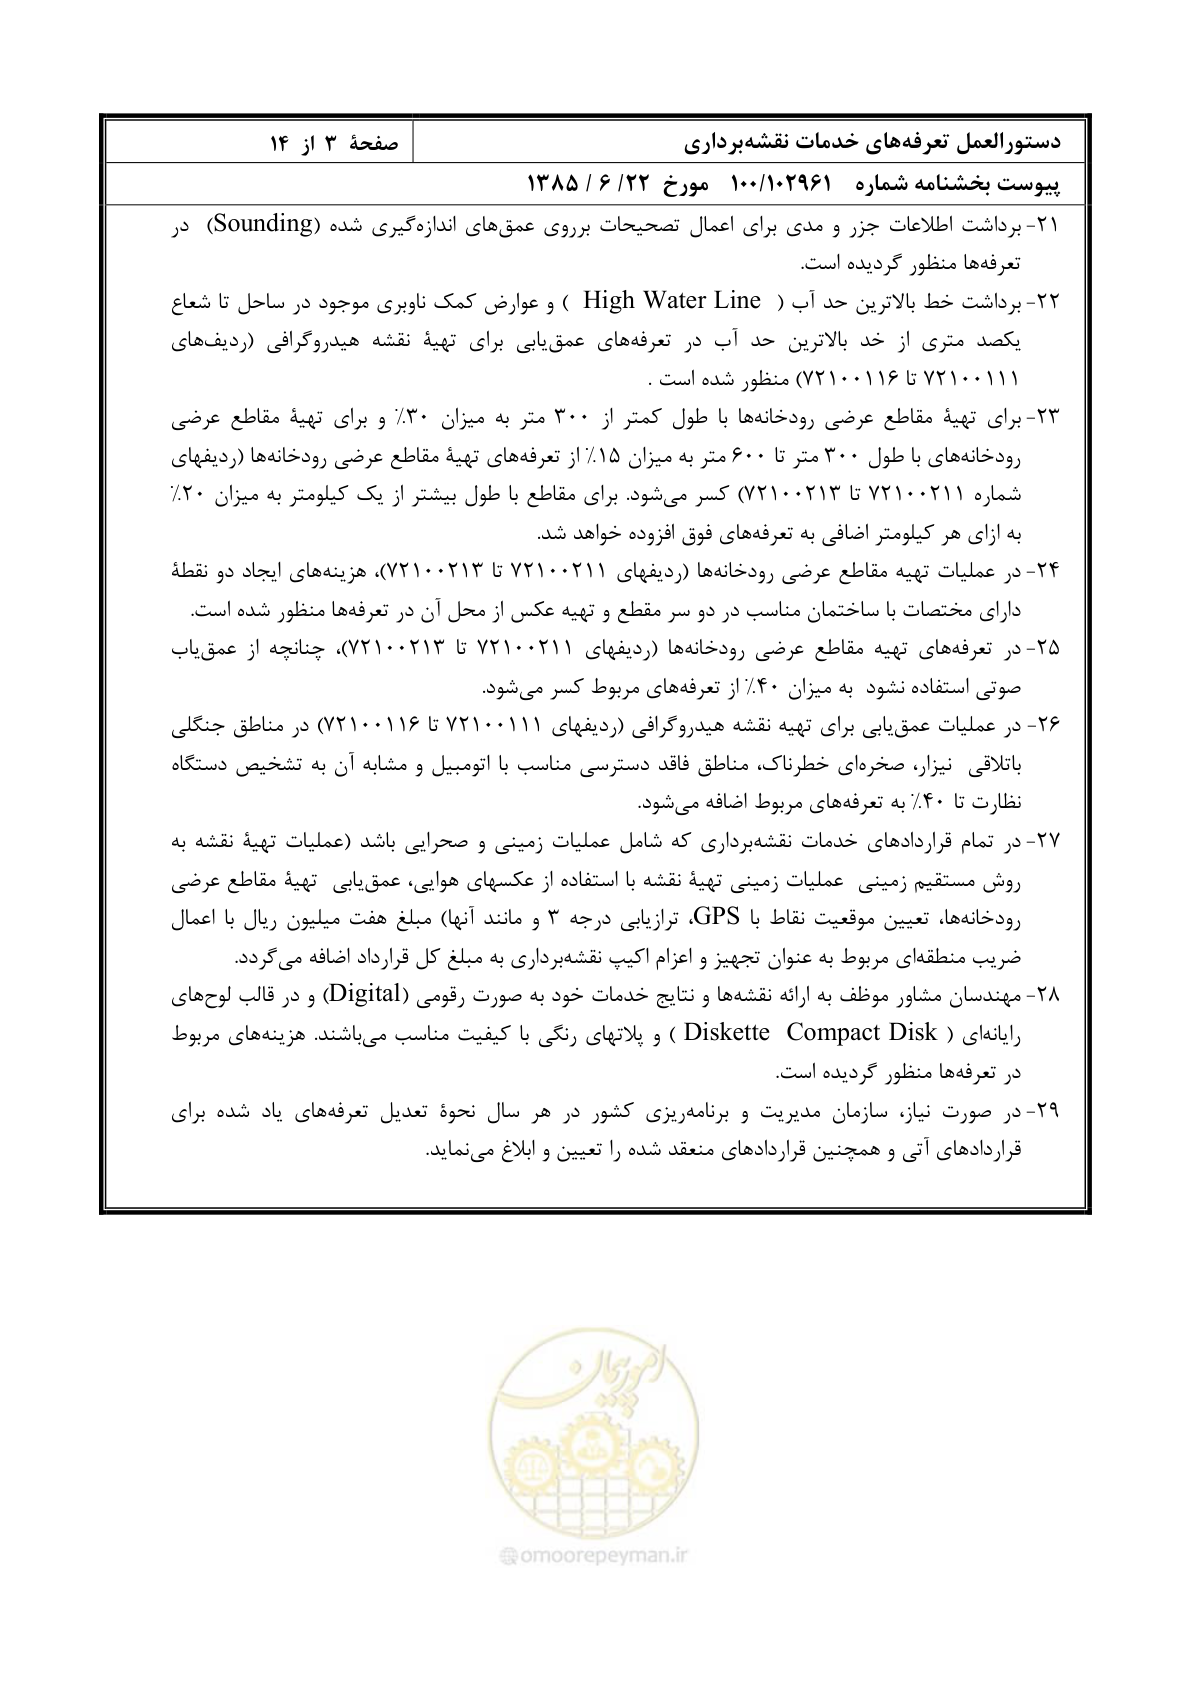 دستورالعمل تعرفه‌های خدمات نقشه‌برداری
صفحهٔ ۳ از ۱۴
پیوست بخشنامه شماره ۱۰۰/۱۰۲۹۶۱ مورخ ۲۲/ ۶ / ۱۳۸۵
۲۱- برداشت اطلاعات جزر و مدی برای اعمال تصحیحات برروی عمق‌های اندازه‌گیری شده (Sounding) در
تعرفه‌ها منظور گردیده است.
۲۲- برداشت خط بالاترین حد آب ( High Water Line ) و عوارض کمک ناوبری موجود در ساحل تا شعاع
یکصد متری از خد بالاترین حد آب در تعرفه‌های عمق‌یابی برای تهیهٔ نقشه هیدروگرافی (ردیف‌های
۷۲۱۰۰۱۱۱ تا ۷۲۱۰۰۱۱۶) منظور شده است .
۲۳- برای تهیهٔ مقاطع عرضی رودخانه‌ها با طول کمتر از ۳۰۰ متر به میزان ۳۰٪ و برای تهیهٔ مقاطع عرضی
رودخانه‌های با طول ۳۰۰ متر تا ۶۰۰ متر به میزان ۱۵٪ از تعرفه‌های تهیهٔ مقاطع عرضی رودخانه‌ها (ردیفهای
شماره ۷۲۱۰۰۲۱۱ تا ۷۲۱۰۰۲۱۳) کسر می‌شود. برای مقاطع با طول بیشتر از یک کیلومتر به میزان ۲۰٪
به ازای هر کیلومتر اضافی به تعرفه‌های فوق افزوده خواهد شد.
۲۴- در عملیات تهیه مقاطع عرضی رودخانه‌ها (ردیفهای ۷۲۱۰۰۲۱۱ تا ۷۲۱۰۰۲۱۳)، هزینه‌های ایجاد دو نقطهٔ
دارای مختصات با ساختمان مناسب در دو سر مقطع و تهیه عکس از محل آن در تعرفه‌ها منظور شده است.
۲۵- در تعرفه‌های تهیه مقاطع عرضی رودخانه‌ها (ردیفهای ۷۲۱۰۰۲۱۱ تا ۷۲۱۰۰۲۱۳)، چنانچه از عمق‌یاب
صوتی استفاده نشود به میزان ۴۰٪ از تعرفه‌های مربوط کسر می‌شود.
۲۶- در عملیات عمق‌یابی برای تهیه نقشه هیدروگرافی (ردیفهای ۷۲۱۰۰۱۱۱ تا ۷۲۱۰۰۱۱۶) در مناطق جنگلی
باتلاقی نیزار، صخره‌ای خطرناک، مناطق فاقد دسترسی مناسب با اتومبیل و مشابه آن به تشخیص دستگاه
نظارت تا ۴۰٪ به تعرفه‌های مربوط اضافه می‌شود.
۲۷- در تمام قراردادهای خدمات نقشه‌برداری که شامل عملیات زمینی و صحرایی باشد (عملیات تهیهٔ نقشه به
روش مستقیم زمینی عملیات زمینی تهیهٔ نقشه با استفاده از عکسهای هوایی، عمق‌یابی تهیهٔ مقاطع عرضی
رودخانه‌ها، تعیین موقعیت نقاط با GPS، ترازیابی درجه ۳ و مانند آنها) مبلغ هفت میلیون ریال با اعمال
ضریب منطقه‌ای مربوط به عنوان تجهیز و اعزام اکیپ نقشه‌برداری به مبلغ کل قرارداد اضافه می‌گردد.
۲۸- مهندسان مشاور موظف به ارائه نقشه‌ها و نتایج خدمات خود به صورت رقومی (Digital) و در قالب لوح‌های
رایانه‌ای ( Diskette Compact Disk ) و پلاتهای رنگی با کیفیت مناسب می‌باشند. هزینه‌های مربوط
در تعرفه‌ها منظور گردیده است.
۲۹- در صورت نیاز، سازمان مدیریت و برنامه‌ریزی کشور در هر سال نحوهٔ تعدیل تعرفه‌های یاد شده برای
قراردادهای آتی و همچنین قراردادهای منعقد شده را تعیین و ابلاغ می‌نماید.
امور پیمان
@omoorepeyman.ir